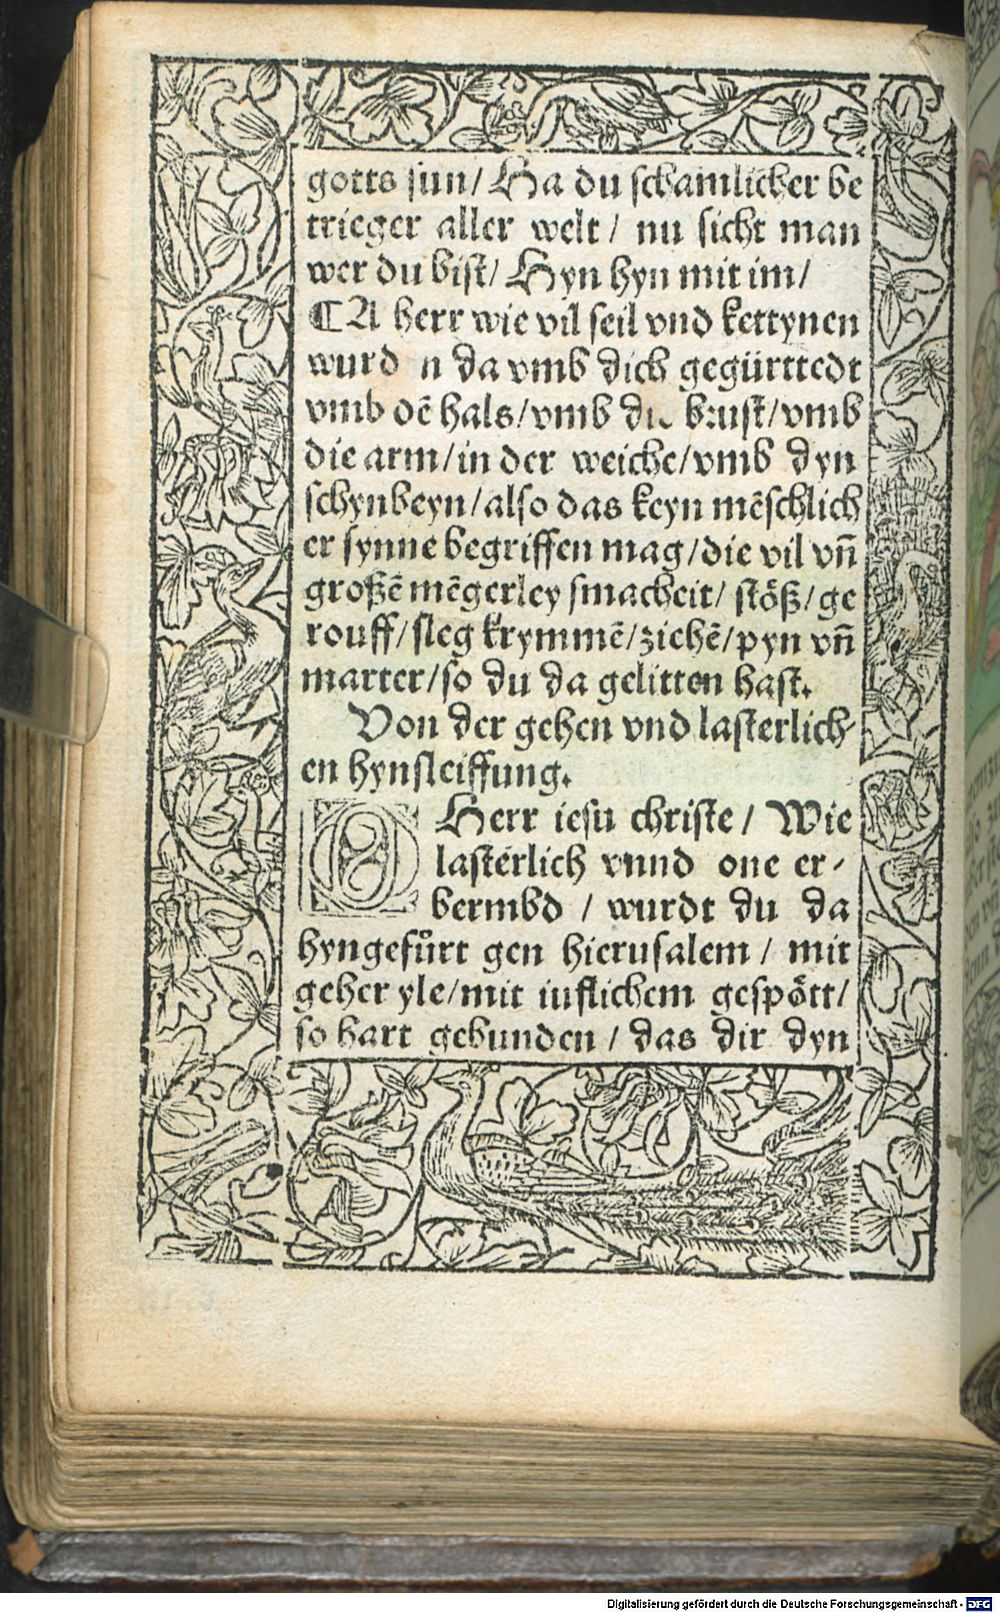 gotts sun/ Ha du schamlicher be
trieger aller welt/ nu sicht man
wer du bist/ Hyn hyn mit im/
¶ A herr wie vil seil vnd kettynen
wurd n da vmb dich gegürttedt
vmb dē hals/vmb die brust/vmb
die arm/in der weiche/vmb dyn
schynbeyn/also das keyn mēschlich
er synne begriffen mag/die vil vn̄
großē mēgerley smacheit/ stöß/ge
rouff/sleg krymmē/ziehē/pyn vn̄
marter/so du da gelitten hast.
Von der gehen vnd lasterlich-
en hynsleiffung.
O Herr iesu christe/ Wie
lasterlich vnnd one er-
bermbd / wurdt du da
hyngefůrt gen hierusalem / mit
geher yle/mit iuflichem gespött/
so hart gebunden / das dir dyn
Digitalisierung gefördert durch die Deutsche Forschungsgemeinschaft - DFG